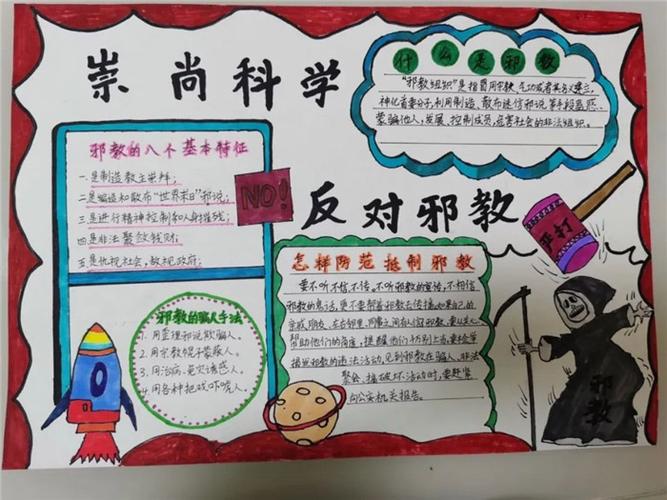 崇尚科学
什么是邪教
"邪教组织"是指冒用宗教、气功或者其名义建立,
神化首要分子,利用制造、散布迷信邪说等手段蛊惑、
蒙骗他人,发展、控制成员,危害社会的非法组织。
邪教的八个基本特征
一是制造教主崇拜;
二是编造和散布"世界末日"邪说;
三是进行精神控制和人身摧残;
四是非法聚敛钱财;
五是仇视社会,敌视政府;
NO!
反对邪教
严打
怎样防范抵制邪教
要不听不信不传。不听邪教的宣传,不相信
邪教的鬼话,更不要帮着邪教去传播。如果自己的
亲戚朋友、左右邻里、同事之间有人信邪教,要从关心、
帮助他们的角度,提醒他们
检
接说邪教的违法活动,见到邪教在骗人、非法
聚会、搞破坏活动时,要赶紧
向公安机关报告。
邪教的骗人手法
1.用歪理邪说欺骗人。
2.用宗教幌子蒙蔽人。
3.用治病、免灾诱惑人。
4.用各种把戏吓唬人。
邪教